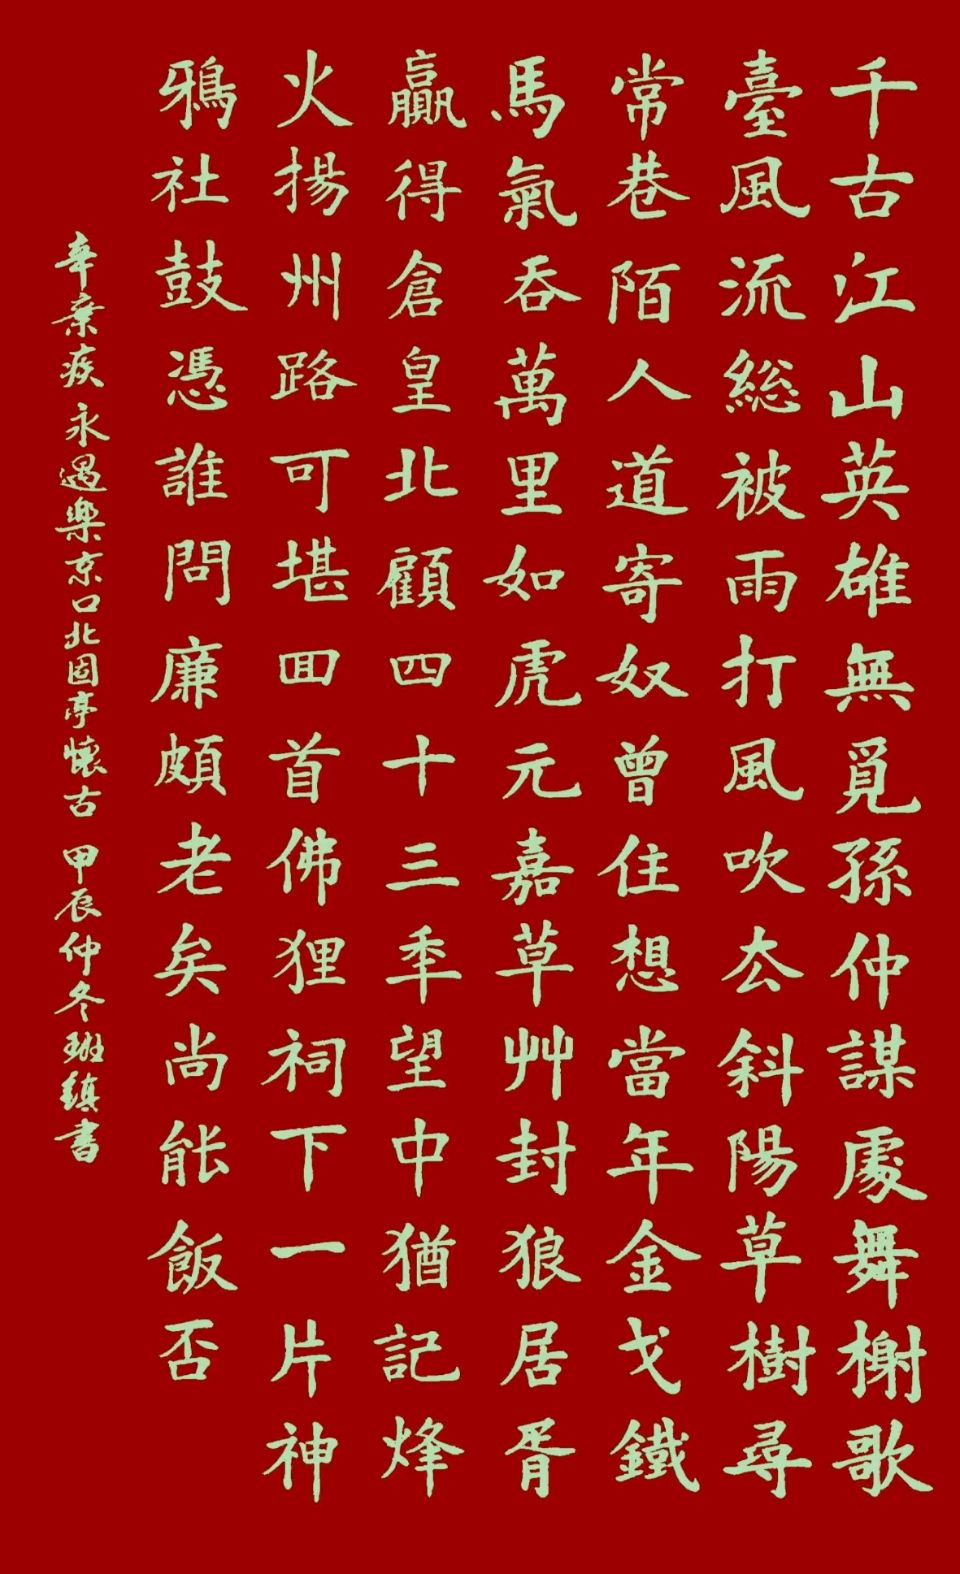 千古江山英雄無覓孫仲謀處舞榭歌
臺風流総被雨打風吹厺斜陽草樹尋
常巷陌人道寄奴曾住想當年金戈鐵
馬氣吞萬里如虎元嘉草艸封狼居胥
贏得倉皇北顧四十三秊望中猶記烽
火揚州路可堪囬首佛狸祠下一片神
鴉社鼓憑誰問廉頗老矣尚能飯否
辛棄疾永遇樂京口北固亭懷古 甲辰仲冬班鎮書